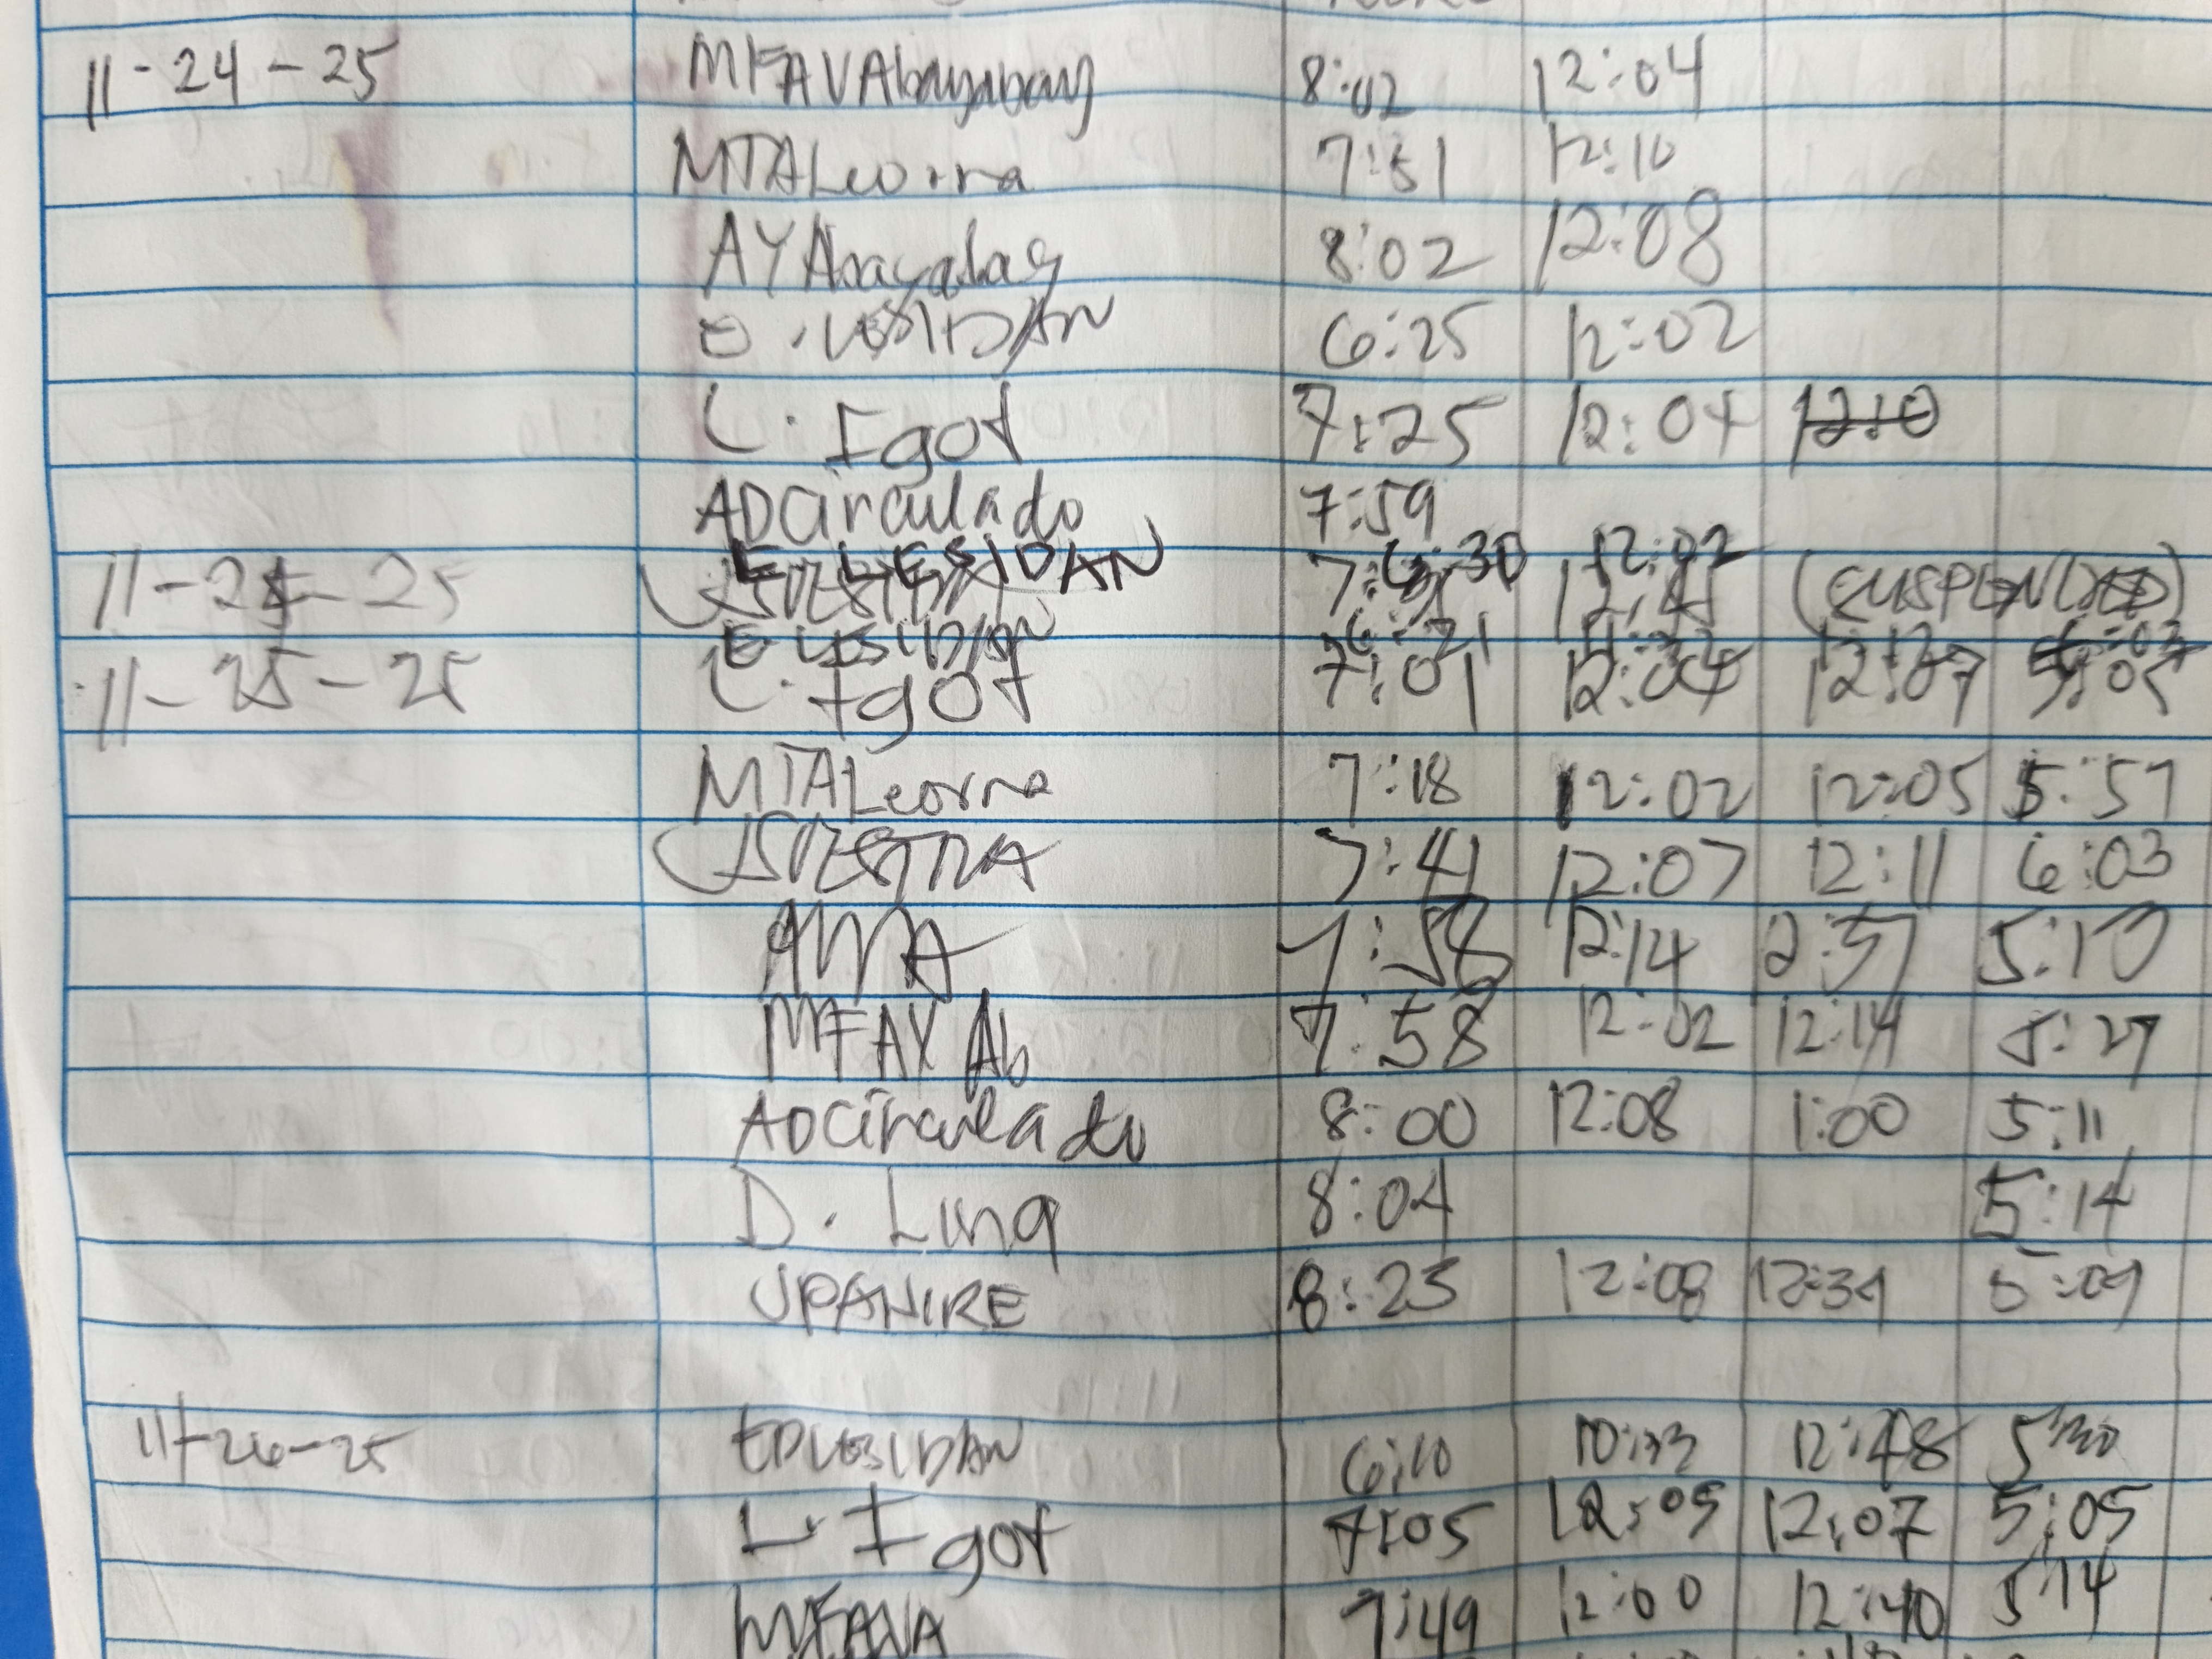 11-24-25 MFAVAbayabay 8:02 12:04
MTALeorna 7:51 12:10
AYAbayabay 8:02 12:08
E. LESIDAN 6:25 12:02
L. Igot 7:25 12:04 12:10
ADCirculado 7:59
E. LESIDAN 6:30 12:02
11-24-25 (SUSPENDED)
E LESIDAN 6:21
11-25-25 L. Igot 7:01 12:04 12:07 5:05
MTALeorna 7:18 12:02 12:05 5:57
7:41 12:07 12:11 6:03
7:58 12:14 2:57 5:10
MFAY Ab 7:58 12:02 12:14 5:27
ADCirculado 8:00 12:08 1:00 5:11
D. Ling 8:04 5:14
JPANIRE 8:23 12:08 12:34 5:09
11-26-25 EDLESIDAN 6:10 10:33 12:48 5:30
L. Igot 7:05 12:05 12:07 5:05
MFAVA 7:49 12:00 12:40 5:14